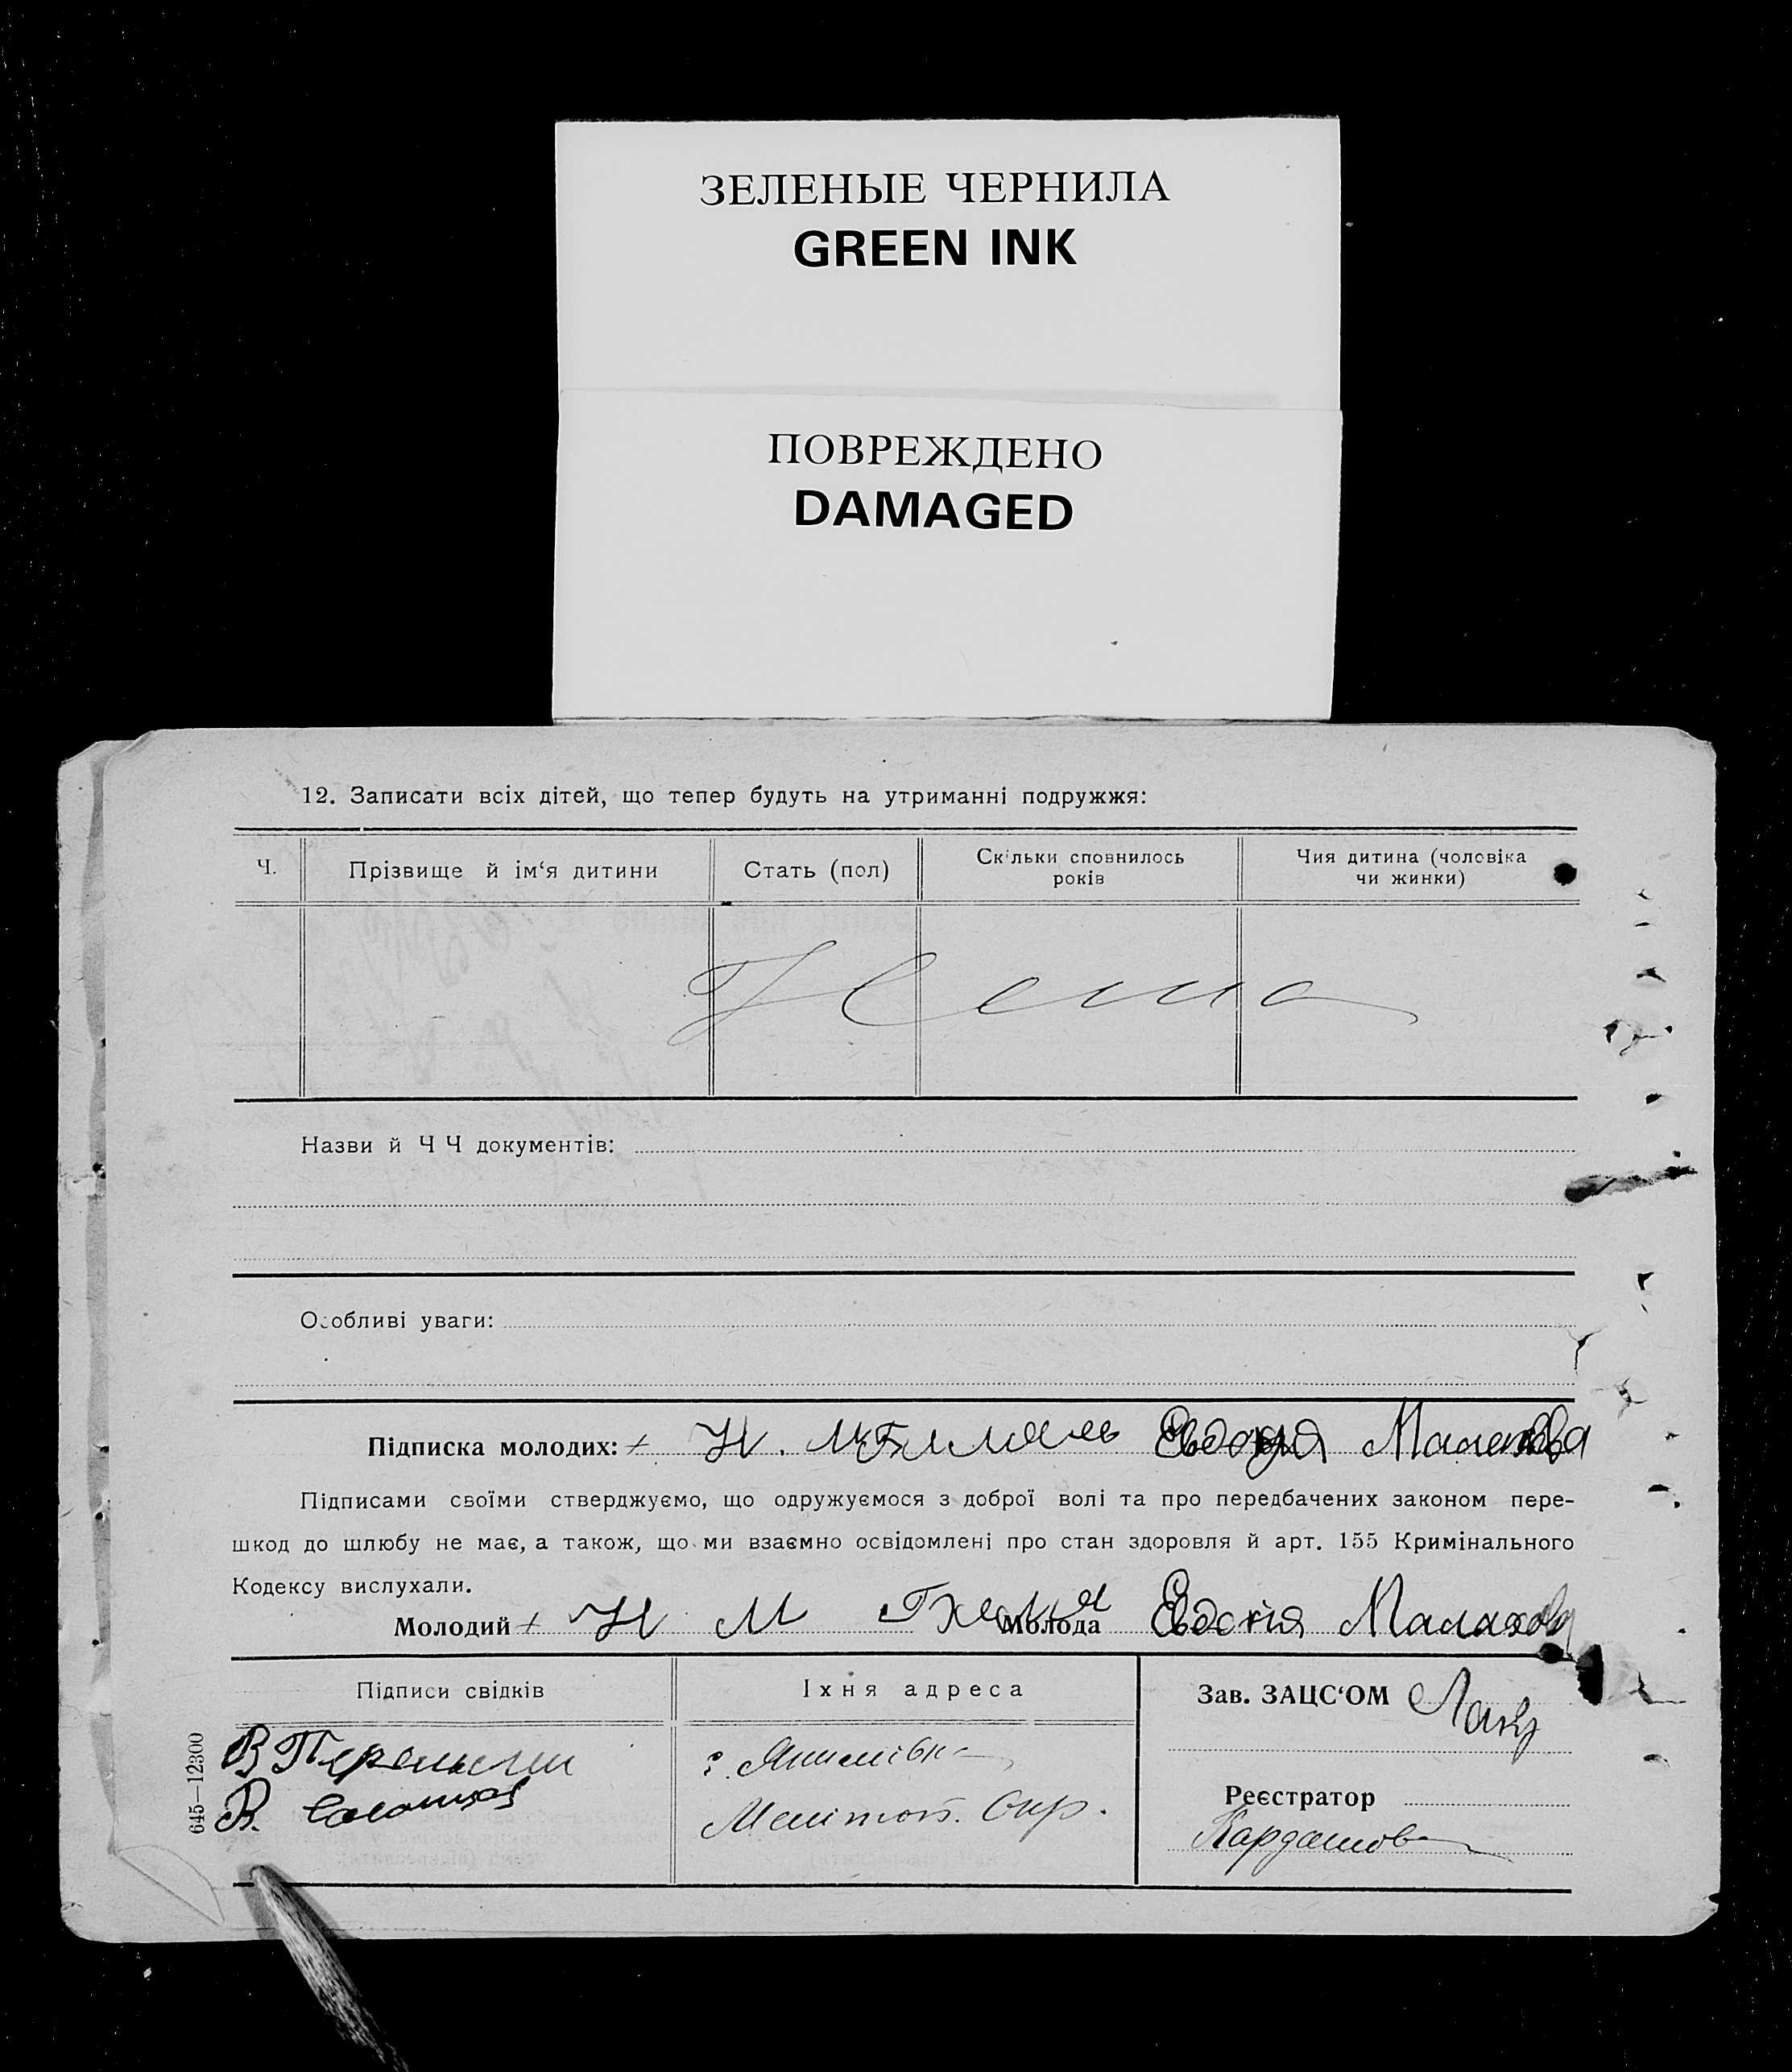 ЗЕЛЕНЫЕ ЧЕРНИЛА
GREEN INK
ПОВРЕЖДЕНО
DAMAGED
12. Записати всіх дітей, що тепер будуть на утриманні подружжя:
Ч. Прізвище й ім‘я дитини Стать (пол) Скільки сповнилось років Чия дитина (чоловіка чи жинки)
Нема
Назви й ЧЧ документів:
Особливі уваги:
Підписка молодих: + Н. Евдокия Малахова
Підписами своїми стверджуємо, що одружуємося з доброї волі та про передбачених законом пере-
шкод до шлюбу не має, а також, що ми взаємно освідомлені про стан здоровля й арт. 155 Кримінального
Кодексу вислухали.
Молодий + Н М Молода Евдокія Малахова
Підписи свідків Їхня адреса Зав. ЗАЦС‘ОМ
В
В. Мелітоп. Окр.
Реєстратор
Кардашова
645—12300